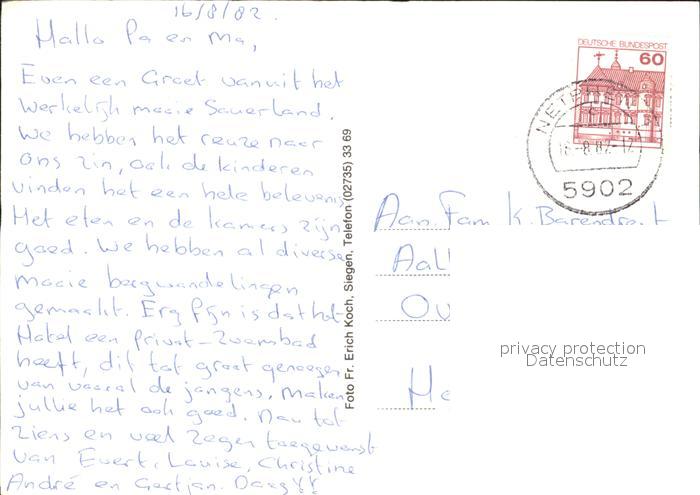 16/8/82.
Hallo Pa en Ma,
Even een Groet vanuit het
werkelijk mooie Sauerland.
We hebben het reuze naar
ons zin, ook de kinderen
vinden het een hele belevenis
Het eten en de kamers zijn
goed. We hebben al diverse
mooie bergwandelingen
gemaakt. Erg fijn is dat het
Hotel een privat-zwembad
heeft, dit tot groot genoegen
van vooral de jongens. Maken
jullie het ook goed. Nou tot
ziens en veel zegen toegewenst
van Evert, Louise, Christine
André en Gertjan. Daag!!
Foto Fr. Erich Koch, Siegen, Telefon (02735) 33 69
DEUTSCHE BUNDESPOST
60
16.-8.82-12
5902
Aan Fam K. Barendregt
privacy protection
Datenschutz